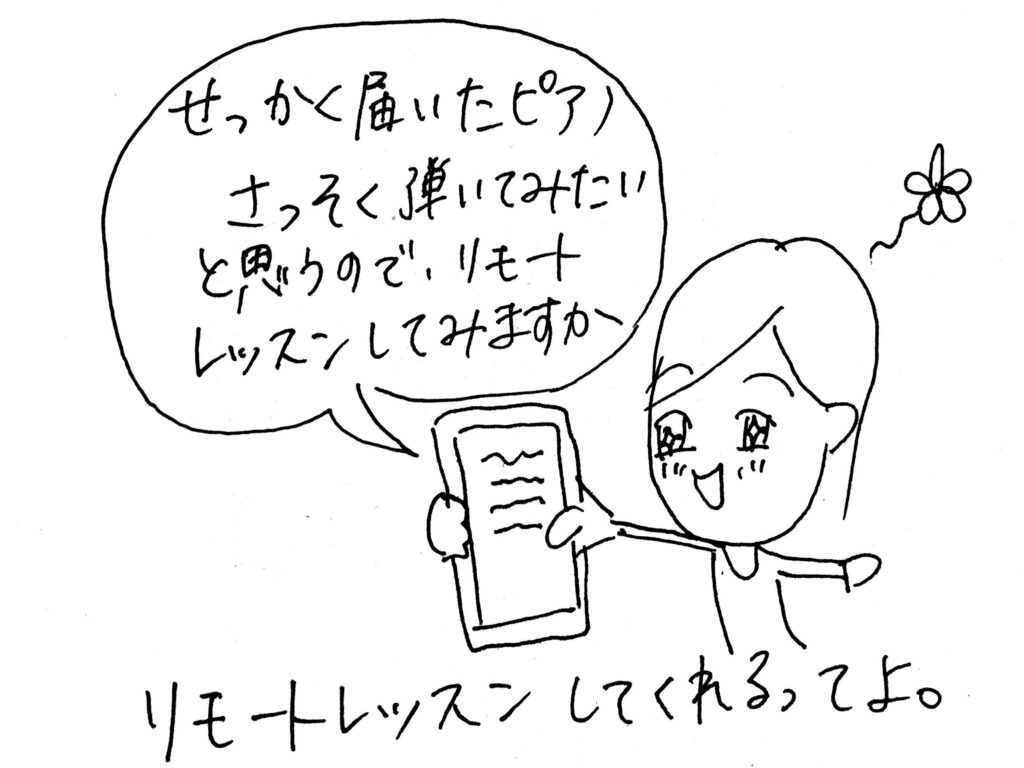 せっかく届いたピアノ
さっそく弾いてみたい
と思うので、リモート
レッスンしてみますか
リモートレッスンしてくれるってよ。